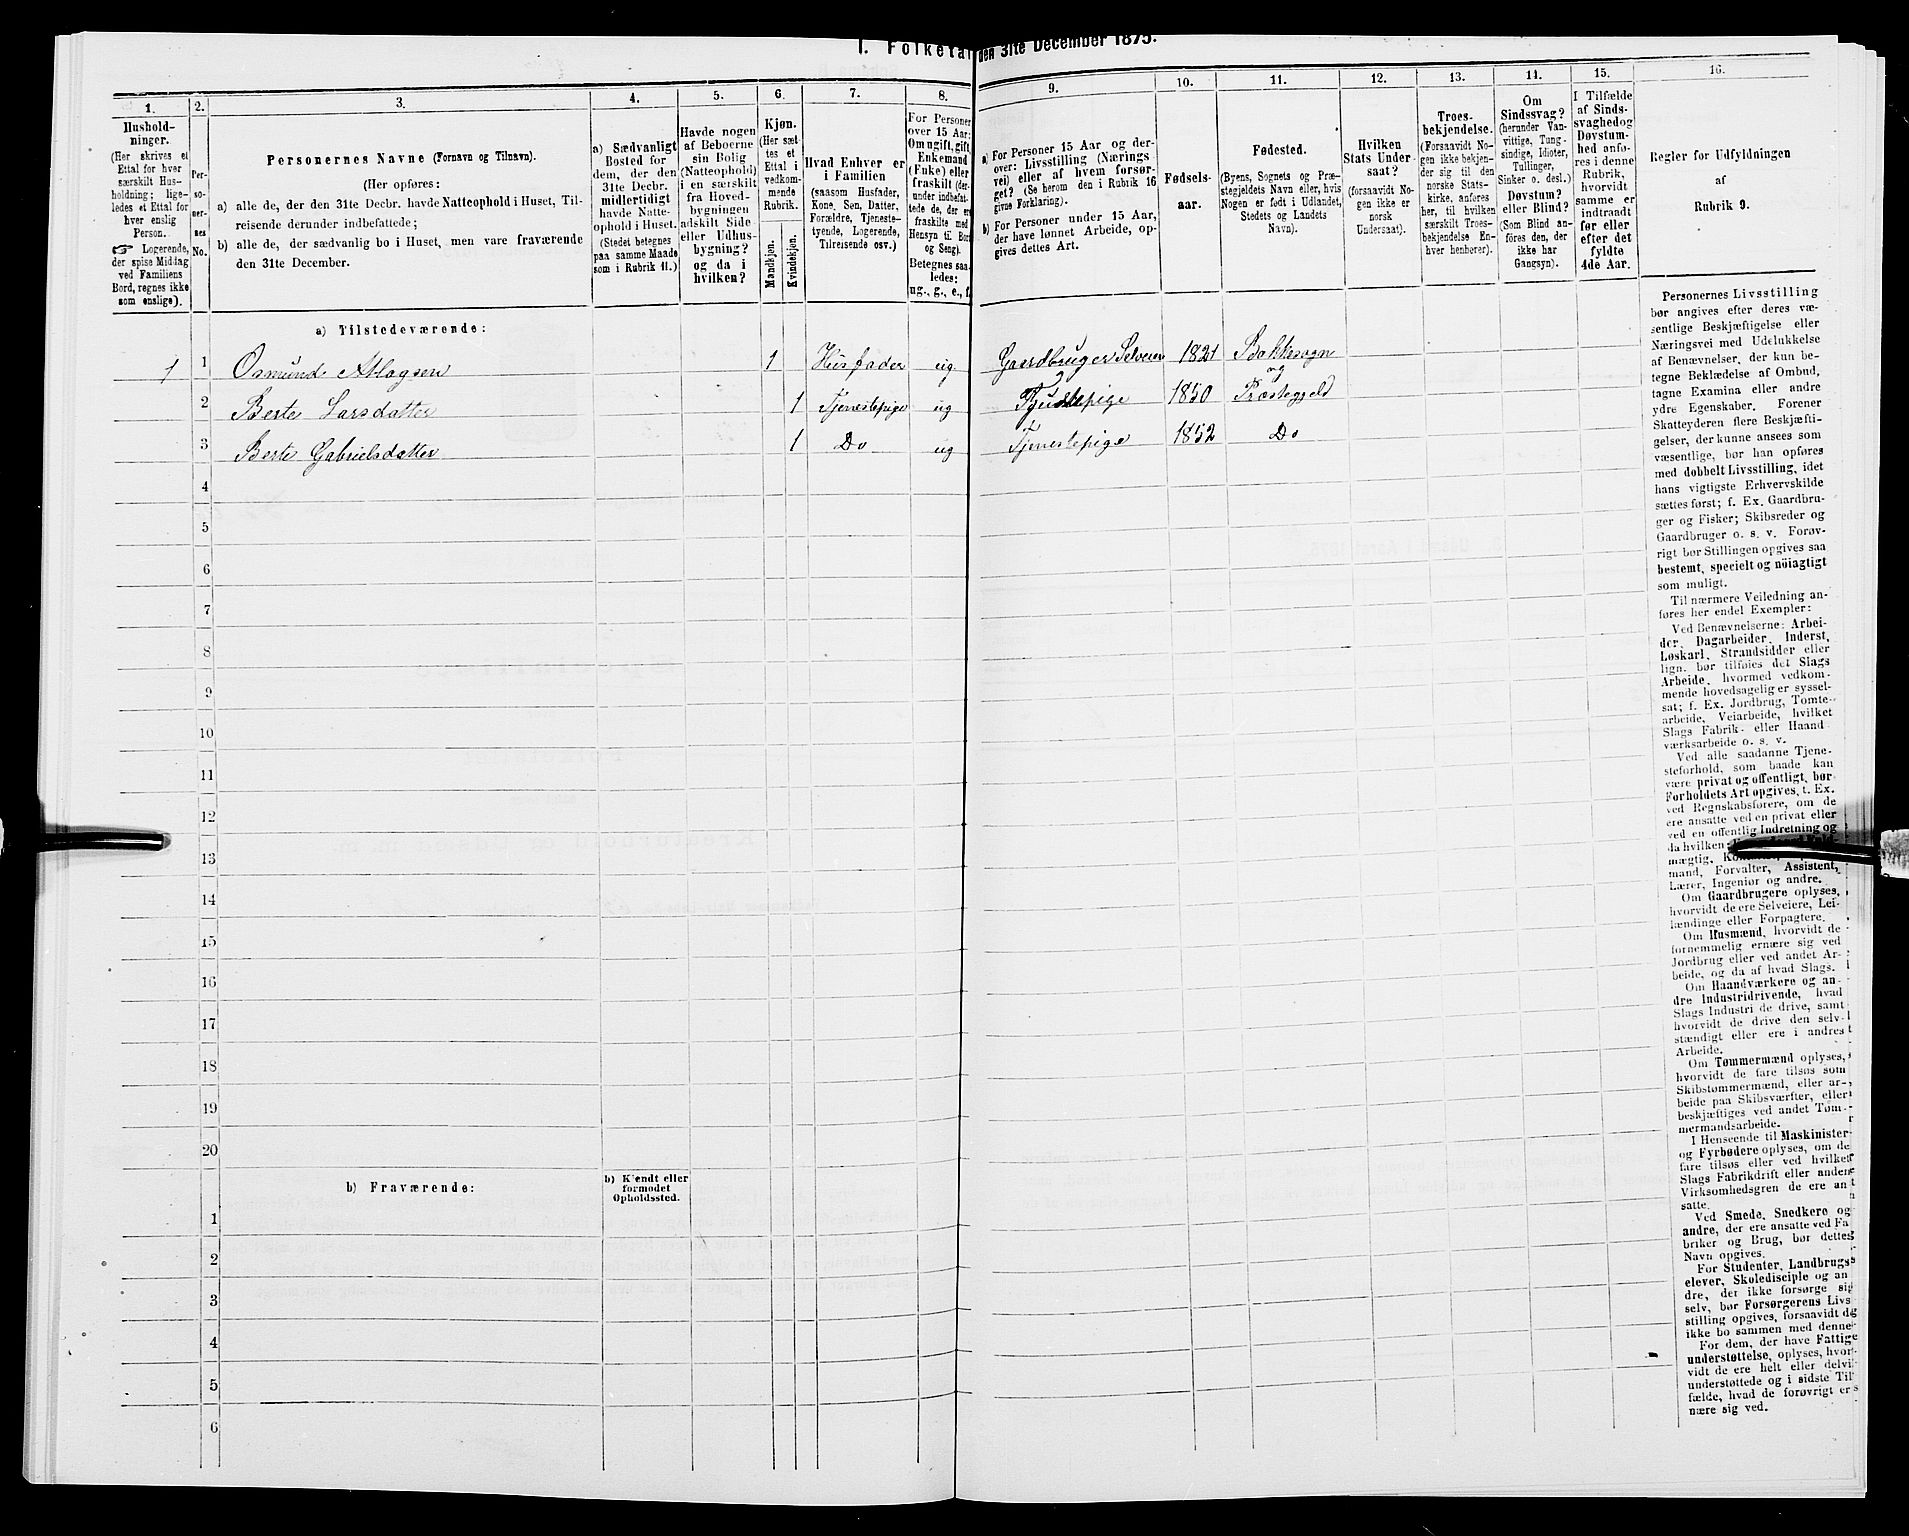 I. Folketal den 31te December 1875.
1.
Hushold-
ninger.
(Her skrives et
Ettal for hver
særskilt Hus-
holdning; lige-
ledes et Ettal for
hver enslig
Person.
☞ Logerende,
der spise Middag
ved Familiens
Bord, regnes ikke
som enslige).
2.
Per-
so-
ner-
nes
No.
3.
Personernes Navne (Fornavn og Tilnavn).
(Her opføres:
a) alle de, der den 31te Decbr. havde Natteophold i Huset, Til-
reisende derunder indbefattede;
b) alle de, der sædvanlig bo i Huset, men vare fraværende
den 31te December.
4.
a) Sædvanligt
Bosted for
dem, der den
31te Decbr.
midlertidigt
havde Natte-
ophold i Huset.
(Stedet betegnes
paa samme Maade
som i Rubrik 11.)
5.
Havde nogen
af Beboerne
sin Bolig
(Natteophold)
i en særskilt
fra Hoved-
bygningen
adskilt Side-
eller Udhus-
bygning?
og da i
hvilken?
6.
Kjøn.
(Her sæt-
tes et
Ettal i
vedkom-
mende
Rubrik.
Mandkjøn.
Kvindekjøn.
7.
Hvad Enhver er
i Familien
(saasom Husfader,
Kone, Søn, Datter,
Forældre, Tjeneste-
tyende, Logerende,
Tilreisende osv.)
8.
For Personer
over 15 Aar:
Om ugift, gift,
Enkemand
(Enke) eller
fraskilt (der-
under indbefat-
tede de, der er
fraskilte med
Hensyn til Bord
og Seng).
Betegnes saa-
ledes:
ug., g., e., f.
9.
a) For Personer 15 Aar og der-
over: Livsstilling (Nærings
vei) eller af hvem forsør-
get? (Se herom den i Rubrik 16
givne Forklaring).
b) For Personer under 15 Aar,
der have lønnet Arbeide, op-
gives dettes Art.
10.
Fødsels-
aar.
11.
Fødested.
(Byens, Sognets og Præ-
stegjeldets Navn eller, hvis
Nogen er født i Udlandet,
Stedets og Landets
Navn).
12.
Hvilken
Stats Under-
saat?
(forsaavidt No-
gen ikke er
norsk
Undersaat).
13.
Troes-
bekjendelse.
(Forsaavidt No-
gen ikke bekjen-
der sig til den
norske Stats-
kirke, anføres
her, til hvilken
særskilt Troes-
bekjendelse En-
hver henhører).
14.
Om
Sindssvag?
(herunder Van-
vittige, Tung-
sindige, Idioter,
Tullinger,
Sinker o. desl.)
Døvstum?
eller Blind?
(Som Blind an-
føres den, der
ikke har
Gangsyn).
15.
I Tilfælde
af Sinds-
svaghed og
Døvstum-
hed anfø-
res i denne
Rubrik,
hvorvidt
samme er
indtraadt
før eller
efter det
fyldte
4de Aar.
16.
Regler for Udfyldningen
af
Rubrik 9.
a) Tilstedeværende:
1 1 Osmund Atlagsen 1 Husfader ug Gaardbruger Selveier 1821 Bakkesogn
og
2 Berte Larsdatter 1 Tjenestepige ug 1850 Præstegjeld
3 Berte Gabrielsdatter 1 Do ug Tjenestepige 1852 Do
4
5
6
7
8
9
10
11
12
13
14
15
16
17
18
19
20
b) Fraværende:
b) Kjendt eller
formodet
Opholdssted.
1
2
3
4
5
6
Personernes Livsstilling
bør angives efter deres væ-
sentlige Beskjæftigelse eller
Næringsvei med Udelukkelse
af Benævnelser, der kun be-
tegne Beklædelse af Ombud,
tagne Examina eller andre
ydre Egenskaber. Forener
Skatteyderen flere Beskjæfti-
gelser, der kunne ansees som
væsentlige, bør han opføres
med dobbelt Livsstilling, idet
hans vigtigste Erhvervskilde
sættes først; f. Ex. Gaardbru-
ger og Fisker; Skibsreder og
Gaardbruger o. s. v. Forøv-
rigt bør Stillingen opgives saa
bestemt, specielt og nöiagtigt
som muligt.
Til nærmere Veiledning an-
føres her endel Exempler:
Ved Benævnelserne: Arbei-
der, Dagarbeider, Inderst,
Løskarl, Strandsidder eller
lign. bør tilføies det Slags
Arbeide, hvormed vedkom-
mende hovedsagelig er syssel-
sat; f. Ex. Jordbrug, Tomte-
arbeide, Veiarbeide, hvilket
Slags Fabrik- eller Haand-
værksarbeide o. s. v.
Ved alle saadanne Tjene-
steforhold, som baade kan
være privat og offentligt, bør
Forholdets Art opgives, t. Ex.
ved Regnskabsførere, om de
ere ansatte ved en privat eller
ved en offentlig Indretning og
da hvilken;
mægtig,
mand, Forvalter, Assistent,
Lærer, Ingeniør og andre.
Om Gaardbrugere oplyses,
hvorvidt de ere Selveiere, Lei-
lændinge eller Forpagtere.
Om Husmænd, hvorvidt de
fornemmelig ernære sig ved
Jordbrug eller ved andet Ar-
beide, og da af hvad Slags.
Om Haandværkere og an-
dre Industridrivende, hvad
Slags Industri de drive, samt
hvorvidt de drive den selv-
stændigt eller ere i andres
Arbeide.
Om Tømmermænd oplyses,
hvorvidt de fare tilsøs som
Skibstømmermænd, eller ar-
beide paa Skibsværfter, eller
beskjæftiges ved andet Tøm-
mermandsarbeide.
I Henseende til Maskinister
og Fyrbødere oplyses, om de
fare tilsøs eller ved hvilket
Slags Fabrikdrift eller anden
Virksomhedsgren de ere an
satte.
Ved Smede, Snedkere og
andre, der ere ansatte ved Fa
briker og Brug, bør dettes
Navn opgives.
For Studenter, Landbrugs
elever, Skoledisciple og an
dre, der ikke forsørge sig
selv, bør Forsørgerens Livs
stilling opgives, forsaavidt de
ikke bo sammen med denne
For dem, der have Fattig
understøttelse, oplyses, hvor
vidt de ere helt eller delvi
understøttede og i sidste Til
fælde, hvad de forøvrigt er
nære sig ved.